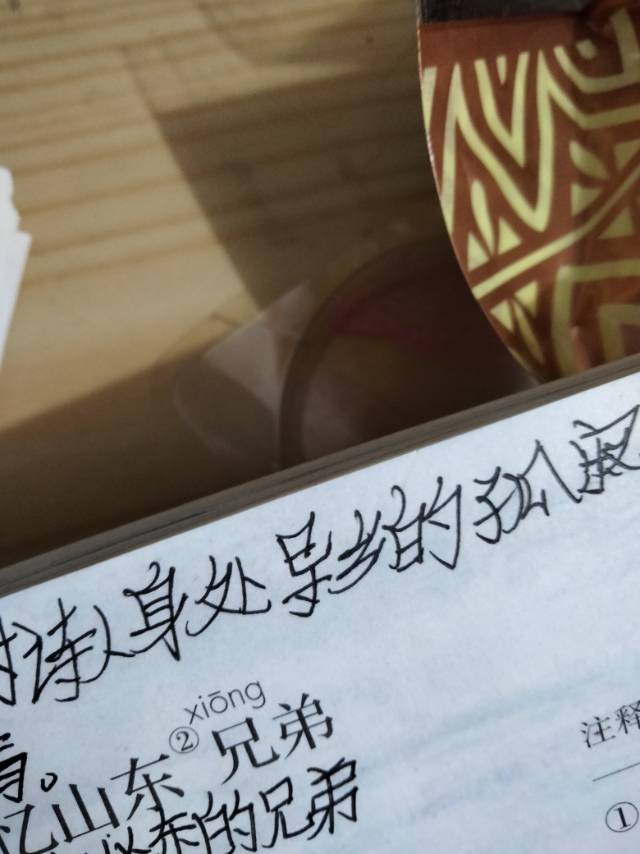 诗人身处异乡的孤寂
情。
xiōng
忆山东②兄弟
东的兄弟
注释
①